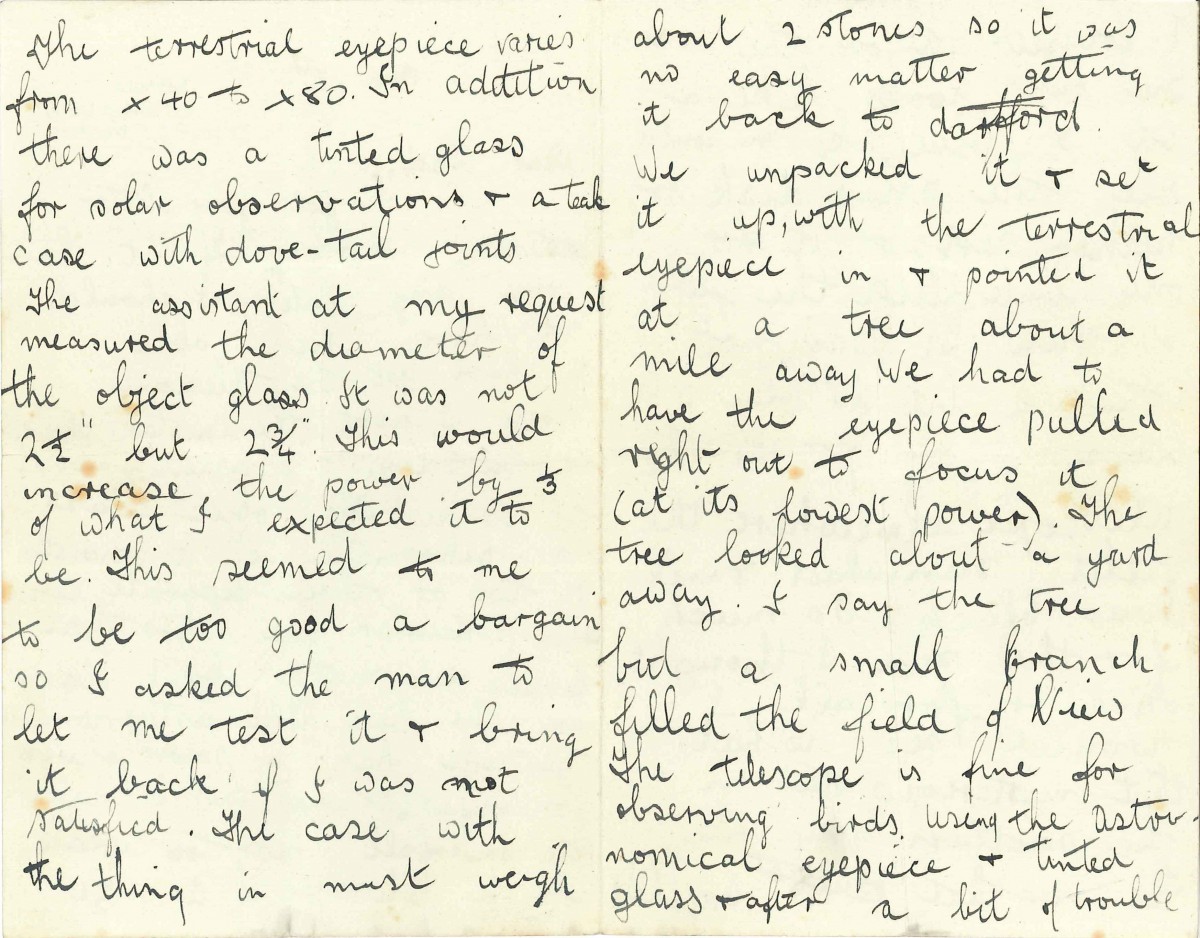 The terrestrial eyepiece varies
from x 40 to x 80. In addition
there was a tinted glass
for solar observations + a teak
case with dove-tail joints
The assistant at my request
measured the diameter of
the object glass It was not
2½" but 2¾". This would
increase the power by ⅓
of what I expected it to
be. This seemed to me
to be too good a bargain
so I asked the man to
let me test it + bring
it back if I was not
satisfied. The case with
the thing in must weigh
about 2 stones so it was
no easy matter getting
it back to dartford.
We unpacked it + set
it up, with the terrestrial
eyepiece in + pointed it
at a tree about a
mile away. We had to
have the eyepiece pulled
right out to focus it
(at its lowest power). The
tree looked about a yard
away. I say the tree
but a small branch
filled the field of View
The telescope is fine for
observing birds. Using the astro-
nomical eyepiece + tinted
glass + after a bit of trouble